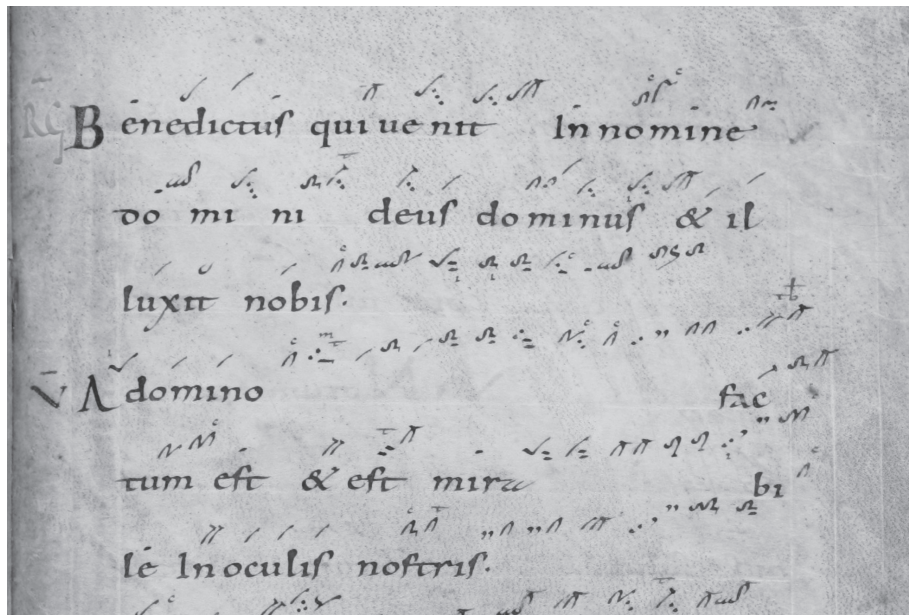 RG Benedictus qui uenit In nomine
do mi ni deus dominus & il
luxit nobis.
V A domino fac
tum est & est mira bi
le In oculis nostris.